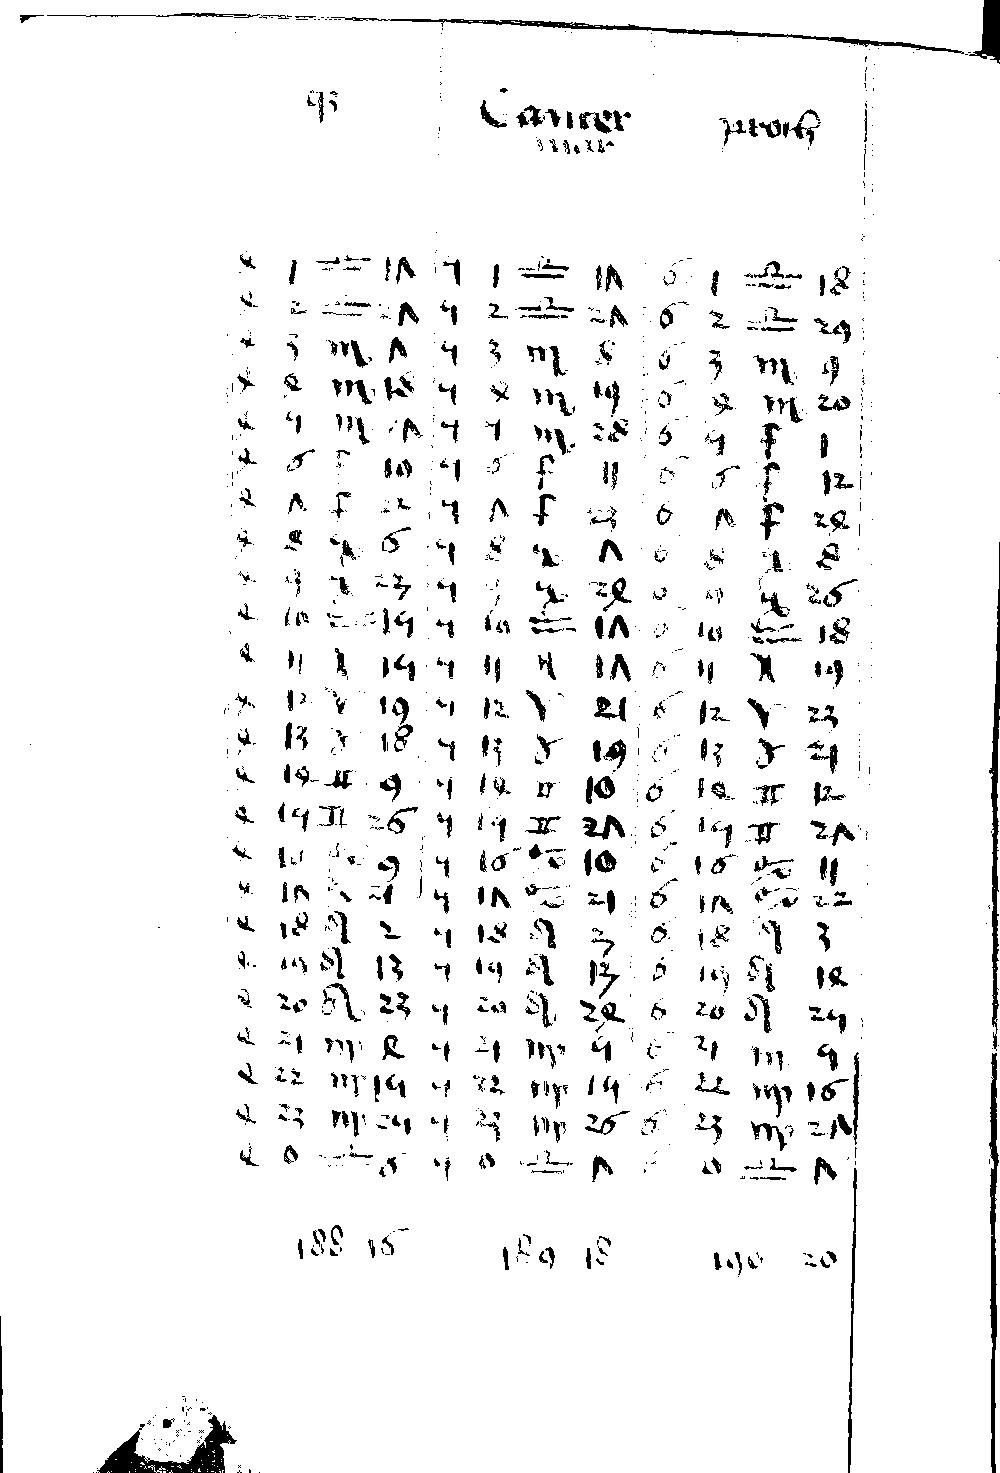 Cancer
4 1 ♎ 17 5 1 ♎ 17 6 1 ♎ 18
4 2 ♎ 27 5 2 ♎ 27 6 2 ♎ 29
4 3 ♏ 7 5 3 ♏ 8 6 3 ♏ 9
4 4 ♏ 18 5 4 ♏ 19 6 4 ♏ 20
4 5 ♏ 27 5 5 ♏ 28 6 5 ♐ 1
4 6 ♐ 10 5 6 ♐ 11 6 6 ♐ 12
4 7 ♐ 22 5 7 ♐ 23 6 7 ♐ 24
4 8 ♑ 6 5 8 ♑ 7 6 8 ♑ 8
4 9 ♑ 23 5 9 ♑ 24 6 9 ♑ 26
4 10 ♒ 15 5 10 ♒ 17 6 10 ♒ 18
4 11 ♓ 15 5 11 ♓ 17 6 11 ♓ 19
4 12 ♈ 19 5 12 ♈ 21 6 12 ♈ 23
4 13 ♉ 18 5 13 ♉ 19 6 13 ♉ 21
4 14 ♊ 9 5 14 ♊ 10 6 14 ♊ 12
4 15 ♊ 26 5 15 ♊ 27 6 15 ♊ 27
4 16 ♋ 9 5 16 ♋ 10 6 16 ♋ 11
4 17 ♋ 21 5 17 ♋ 21 6 17 ♋ 22
4 18 ♌ 2 5 18 ♌ 3 6 18 ♌ 3
4 19 ♌ 13 5 19 ♌ 13 6 19 ♌ 14
4 20 ♌ 23 5 20 ♌ 24 6 20 ♌ 25
4 21 ♍ 4 5 21 ♍ 5 6 21 ♍ 5
4 22 ♍ 15 5 22 ♍ 15 6 22 ♍ 16
4 23 ♍ 25 5 23 ♍ 26 6 23 ♍ 27
4 0 ♎ 6 5 0 ♎ 7 6 0 ♎ 7
188 16 189 18 190 20